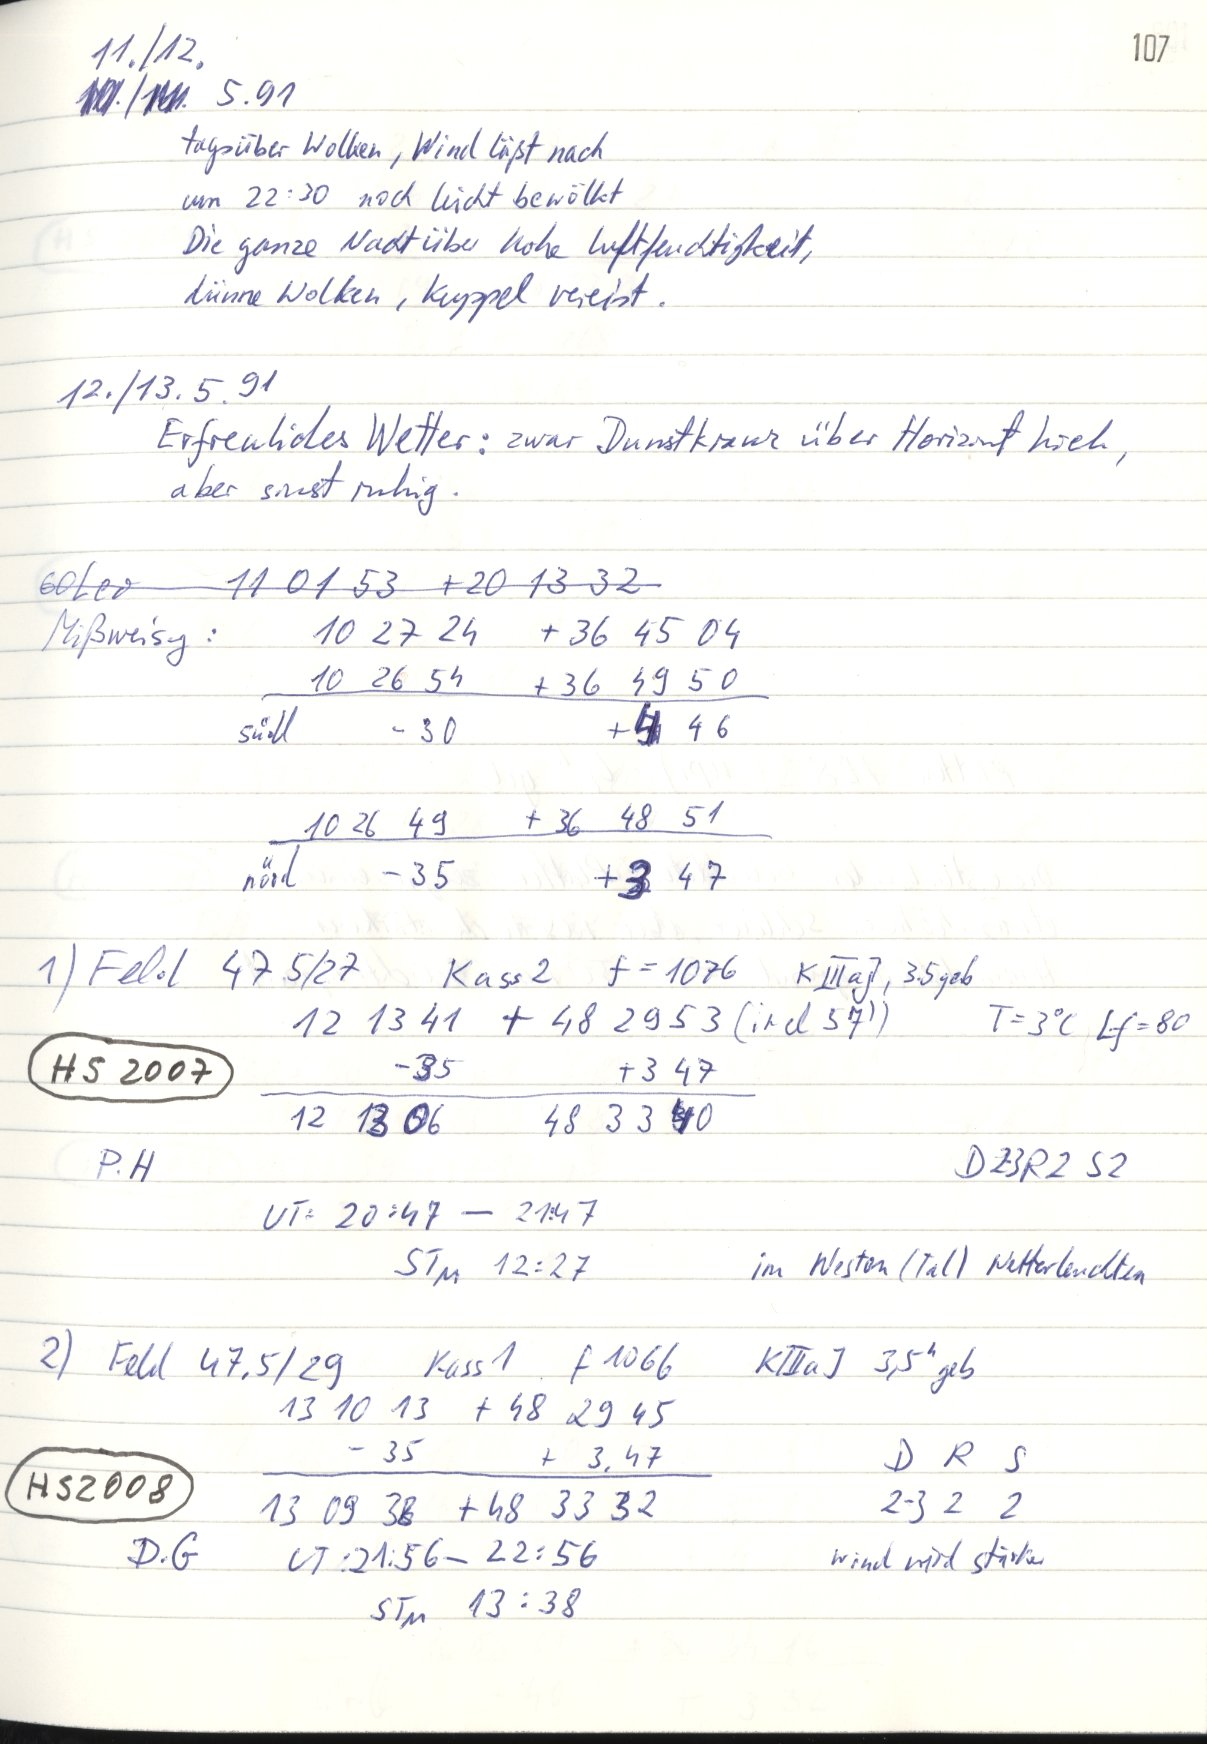 107
11./12.
5.91
tagsüber Wolken, Wind läßt nach
um 22:30 noch leicht bewölkt
Die ganze Nacht über hohe Luftfeuchtigkeit,
dünne Wolken, Kuppel vereist.
12./13. 5. 91
Erfreuliches Wetter: zwar Dunstkranz über Horizont hoch,
aber sonst ruhig.
60Leo 11 01 53 +20 13 32
Mißweisg: 10 27 24 +36 45 04
10 26 54 +36 49 50
südl -30 +4 46
10 26 49 +36 48 51
nörd -35 +3 47
1) Feld 47.5/27 Kass2 f=1076 KIIIaJ, 3.5 geb
12 13 41 + 48 29 53 (incl 57") T=3°C Lf=80
HS 2007 -35 +3 47
12 13 06 48 33 40
P.H D23R2 S2
UT: 20:47 — 21:47
STM 12:27 im Westen (Tal) Wetterleuchten
2) Feld 47.5/29 Kass1 f 1066 KIIIaJ 3,5h geb
13 10 13 +48 29 45
-35 + 3.47 D R S
HS2008 13 09 38 +48 33 32 2-3 2 2
D.G UT:21:56— 22:56 wind wird stärker
STM 13:38